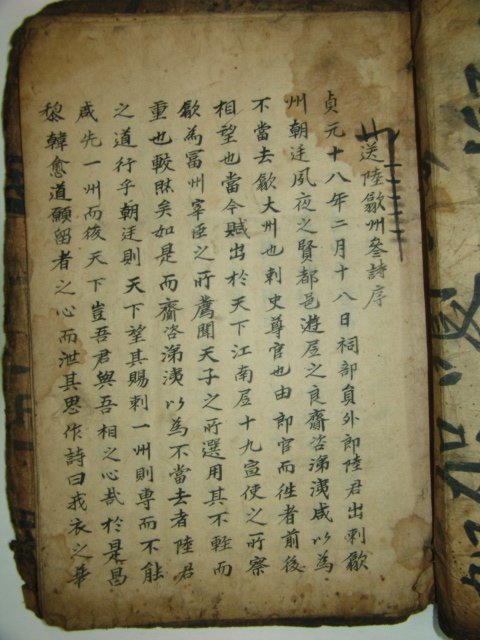 送陸歙州參詩序
貞元十八年二月十八日祠部員外郎陸君出刺歙
州朝廷夙夜之賢都邑遊居之良齎咨涕洟咸以為
不當去歙大州也刺史尊官也由郎官而徃者前後
相望也當今賦出於天下江南居十九宣使之所察
歙為冨州宰臣之所薦聞天子之所選用其不輕而
重也較然矣如是而齎咨涕洟以為不當去者陸君
之道行乎朝廷則天下望其賜刺一州則專而不能
咸先一州而後天下豈吾君與吾相之心哉於是昌
黎韓愈道願留者之心而泄其思作詩曰我衣之華